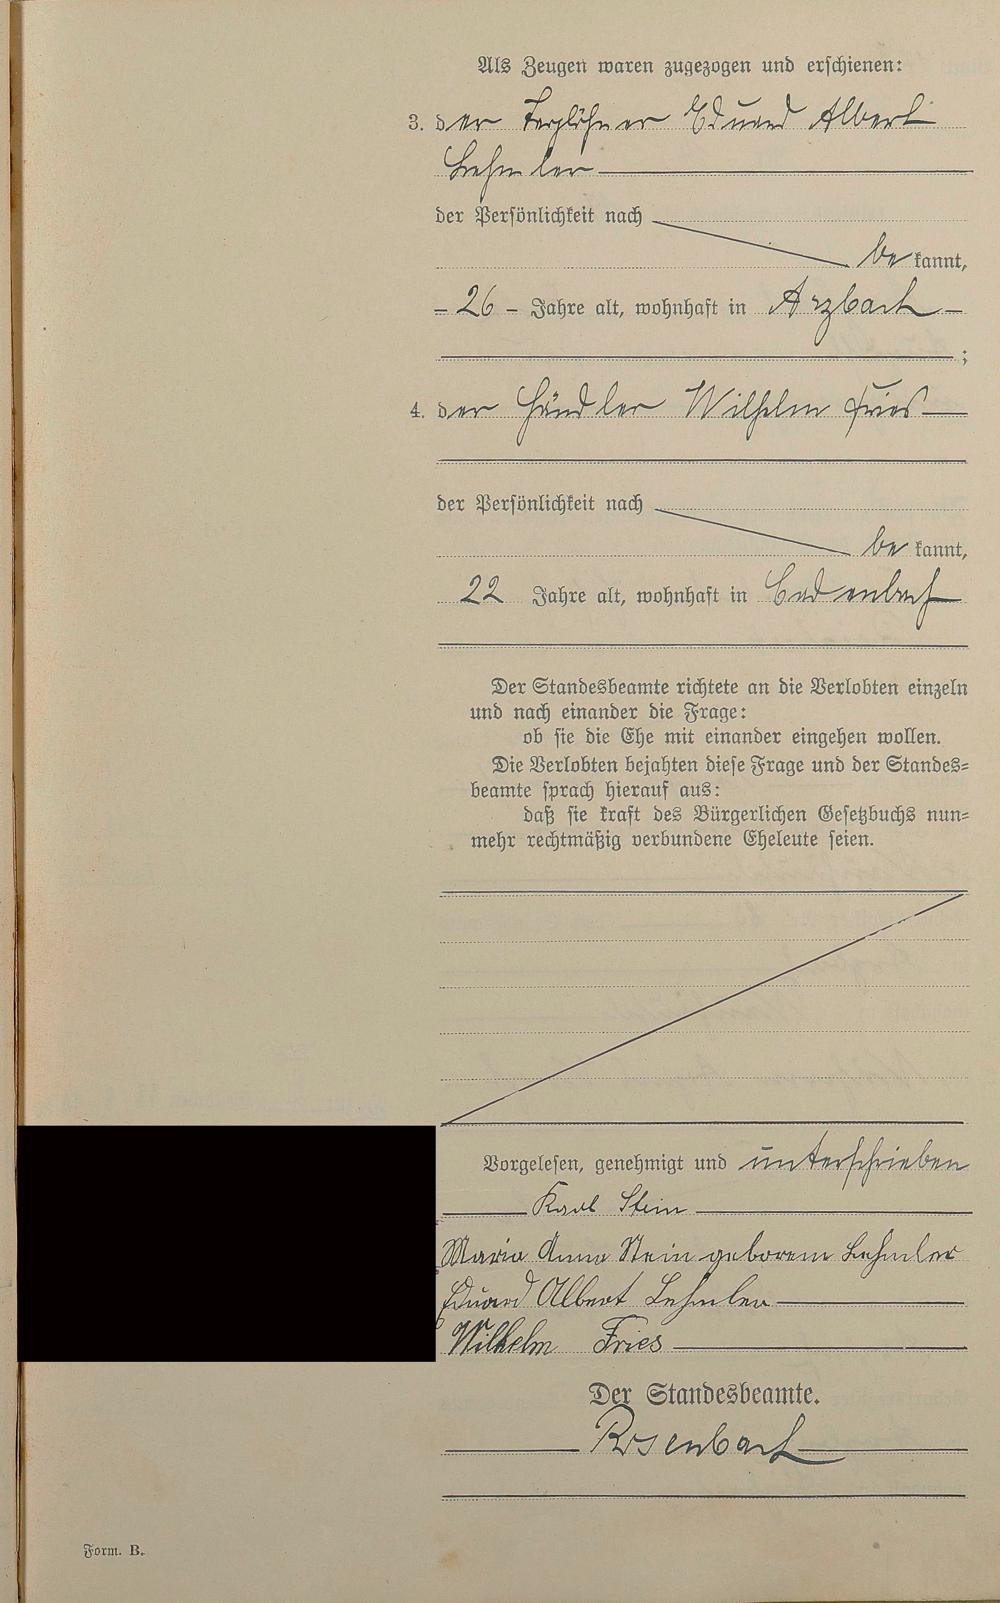 Als Zeugen waren zugezogen und erschienen:
3. der Taglöhner Eduard Albert
Lehmler
der Persönlichkeit nach
be kannt,
26 - Jahre alt, wohnhaft in Arzbach
;
4. der Händler Wilhelm Fries
der Persönlichkeit nach
be kannt,
22 Jahre alt, wohnhaft in Cadenbach
Der Standesbeamte richtete an die Verlobten einzeln
und nach einander die Frage:
ob sie die Ehe mit einander eingehen wollen.
Die Verlobten bejahten diese Frage und der Standes=
beamte sprach hierauf aus:
daß sie kraft des Bürgerlichen Gesetzbuchs nun=
mehr rechtmäßig verbundene Eheleute seien.
Vorgelesen, genehmigt und unterschrieben
Karl Stein
Maria Anna Stein geborene Lehmler
Eduard Albert Lehmler
Wilhelm Fries
Der Standesbeamte.
Rosenbach
Form. B.